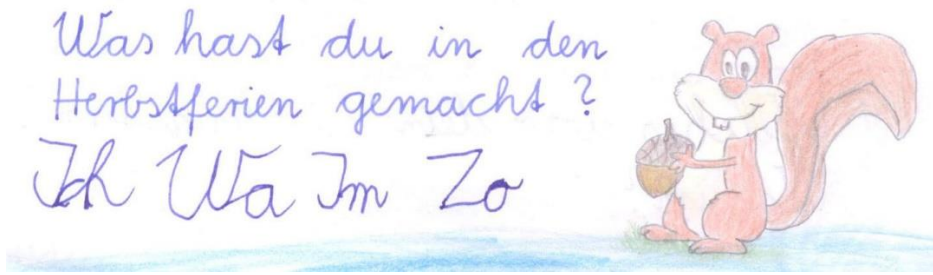 Was hast du in den
Herbstferien gemacht?
Ich Wa Im Zo